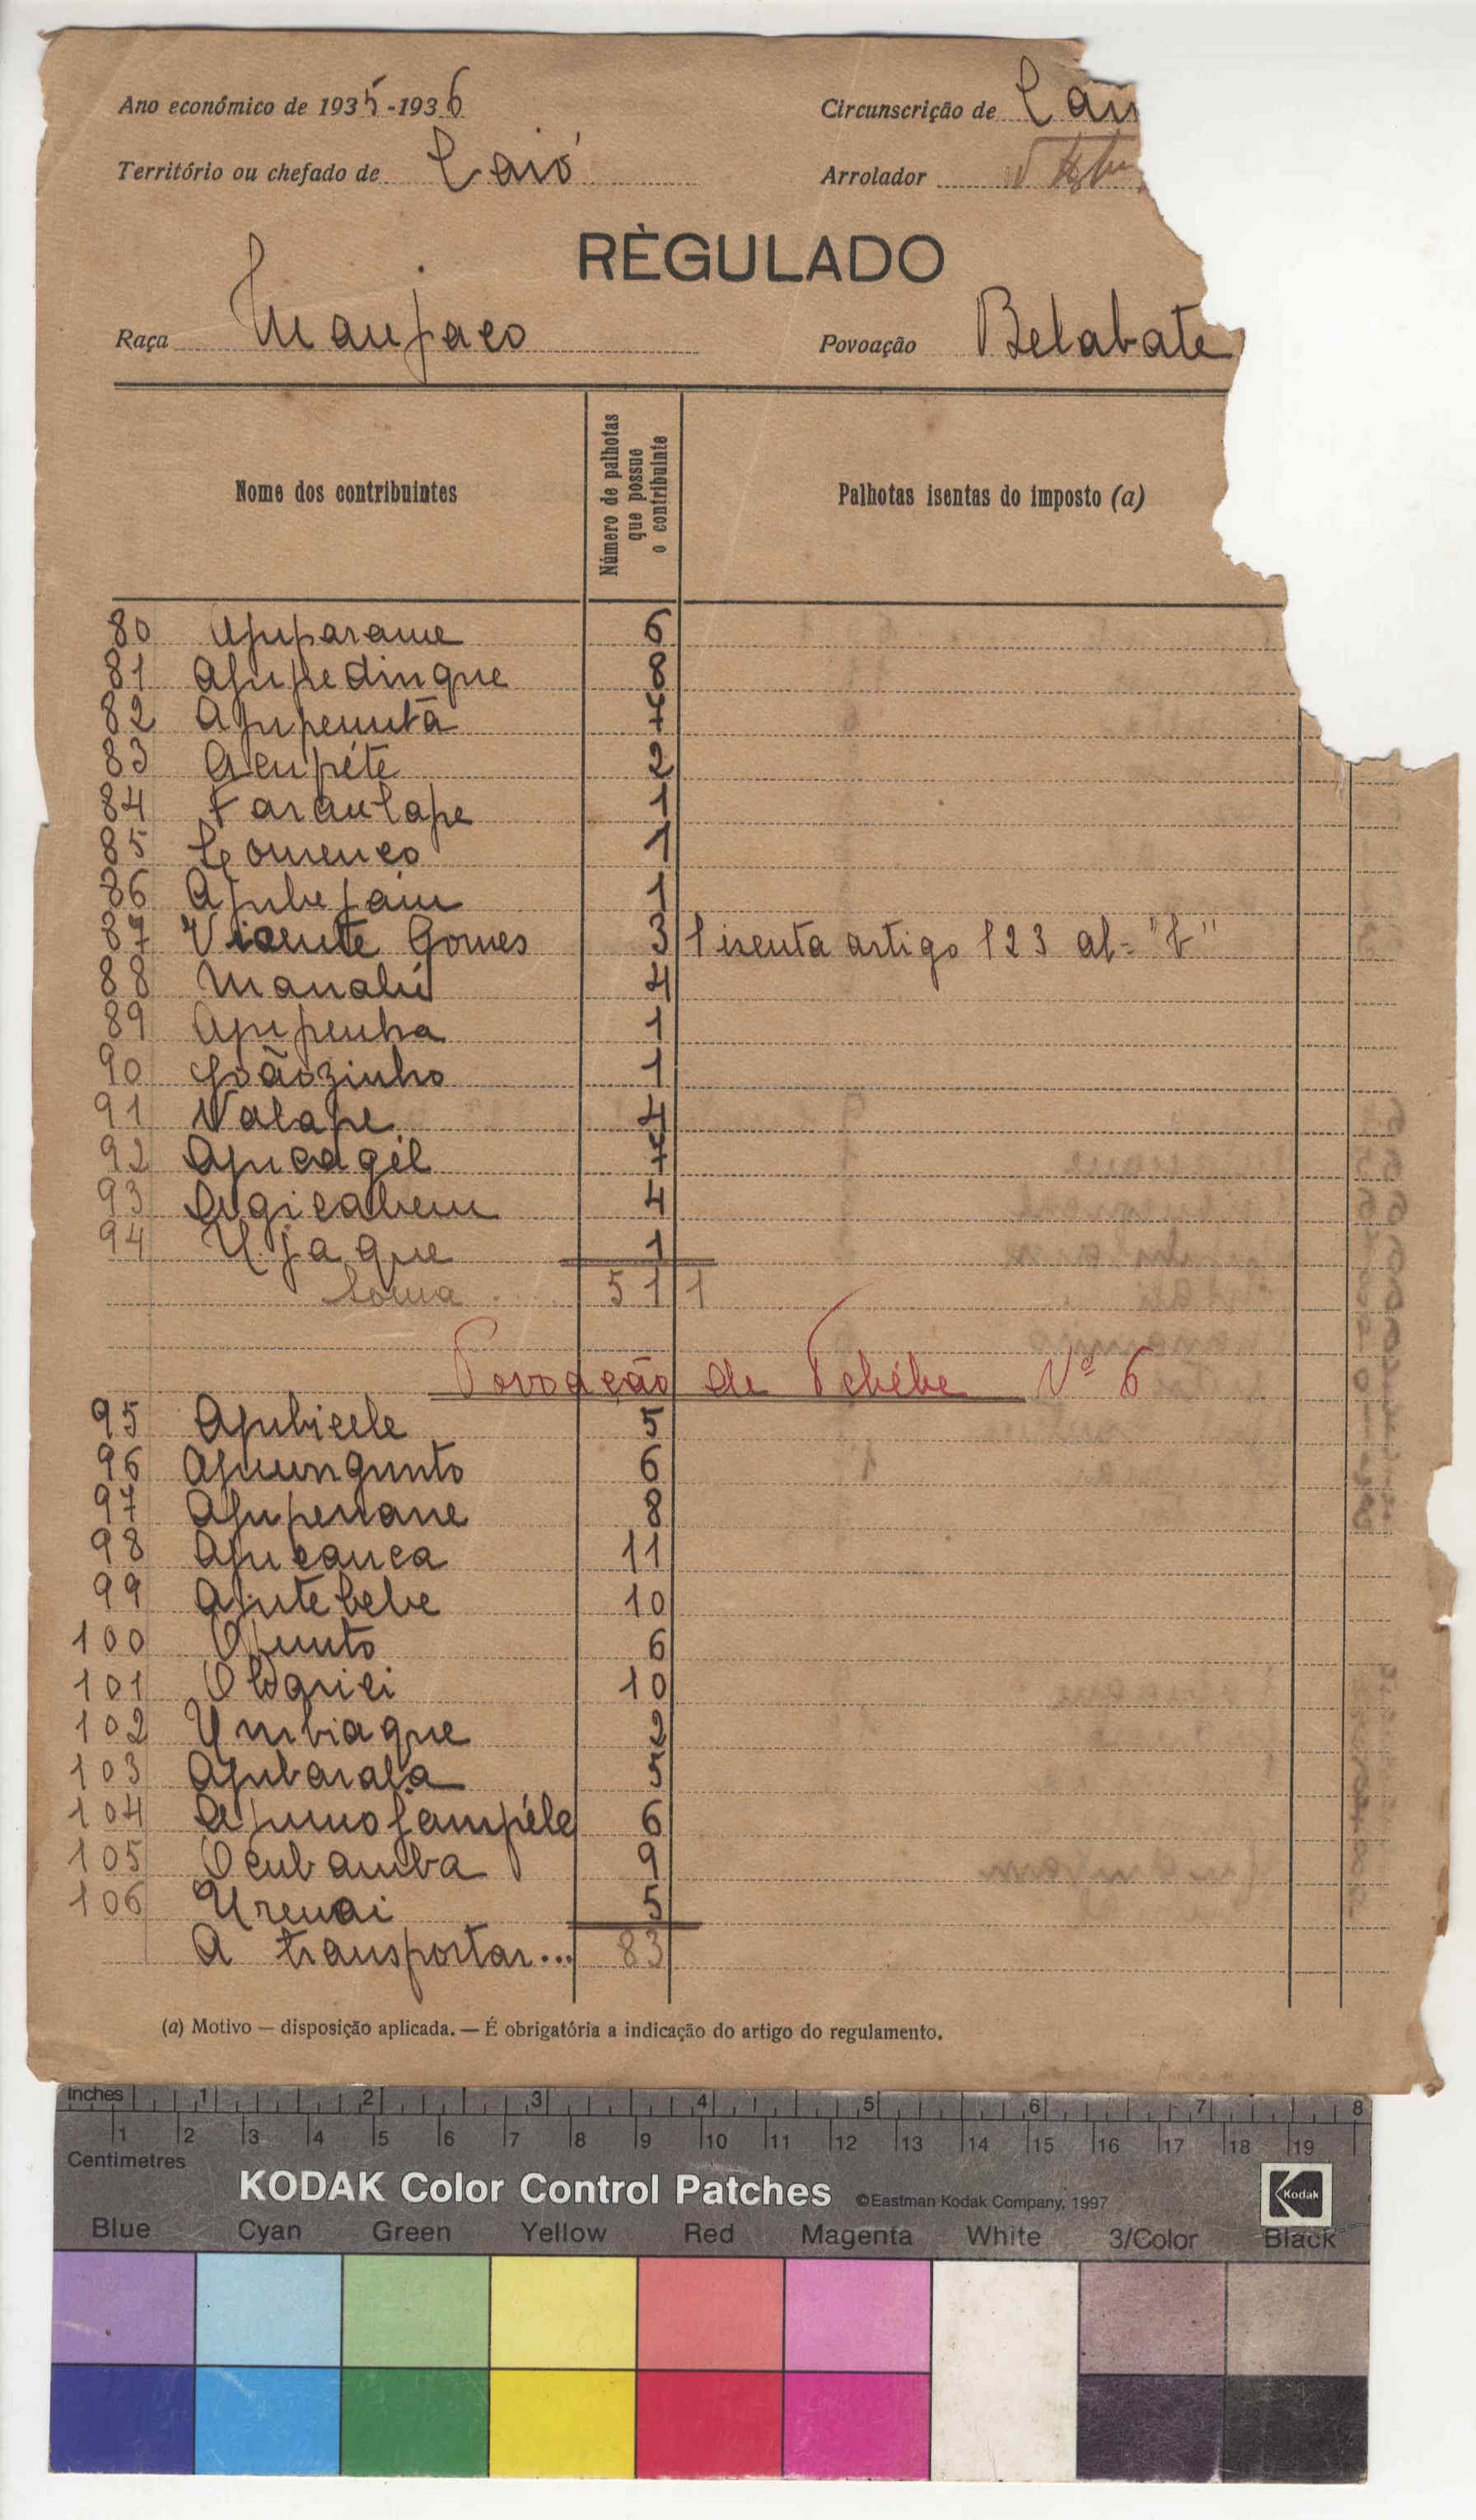 Ano económico de 1935-1936
Circunscrição de
Território ou chefado de Caió
Arrolador
RÈGULADO
Raça Manjaco
Povoação Belabate
Nome dos contribuintes
Número de palhotas que possue o contribuinte
Palhotas isentas do imposto (a)
80 Apuparame 6
81 Apupedinque 8
82 Apupenutã 7
83 Acupéte 2
84 1
85 1
86 1
87 Vicente Gomes 3 1 isenta artigo 123 al= "b"
88 Manabú 4
89 Apupenha 1
90 Joãozinho 1
91 Valape 4
92 Apucagil 7
93 4
94 Ujaque 1
Soma 51 1
Povoação de Tchébe Nº 6
95 Apubicele 5
96 6
97 Apupenane 8
98 Apucauca 11
99 Aputebebe 10
100 6
101 10
102 Umbiaque 2
103 Apubarala 5
104 6
105 Ocubamba 9
106 Urenai 5
A transportar... 83
(a) Motivo — disposição aplicada. — É obrigatória a indicação do artigo do regulamento.
Inches 1 2 3 4 5 6 7 8
1 2 3 4 5 6 7 8 9 10 11 12 13 14 15 16 17 18 19
Centimetres
KODAK Color Control Patches ©Eastman Kodak Company, 1997 Kodak
Blue Cyan Green Yellow Red Magenta White 3/Color Black